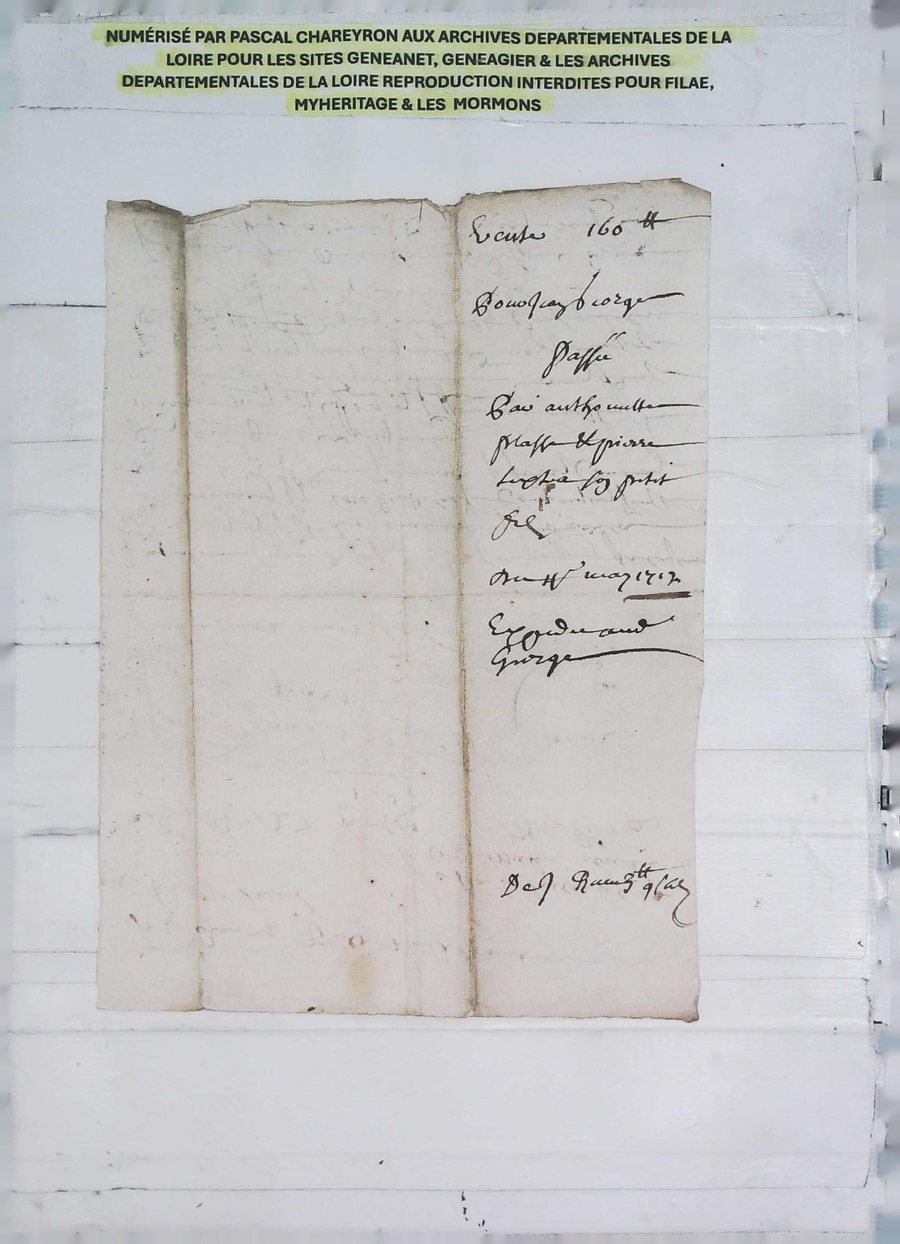 NUMÉRISÉ PAR PASCAL CHAREYRON AUX ARCHIVES DEPARTEMENTALES DE LA
LOIRE POUR LES SITES GENEANET, GENEAGIER & LES ARCHIVES
DEPARTEMENTALES DE LA LOIRE REPRODUCTION INTERDITES POUR FILAE,
MYHERITAGE & LES MORMONS
Vente 160 ₶
Pour Jean George
Passée
Par anthonette
plasse & pierre
son petit
fils
Du may 1712
Expedié aud
George